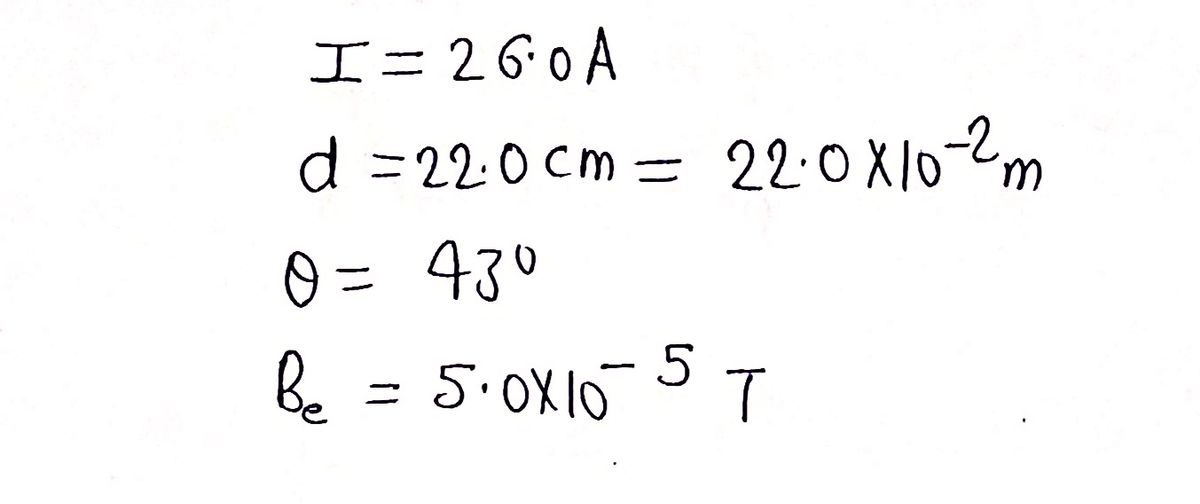 I = 26.0 A
d = 22.0 cm = 22.0 X 10⁻² m
θ = 43°
Bₑ = 5.0 X 10⁻⁵ T